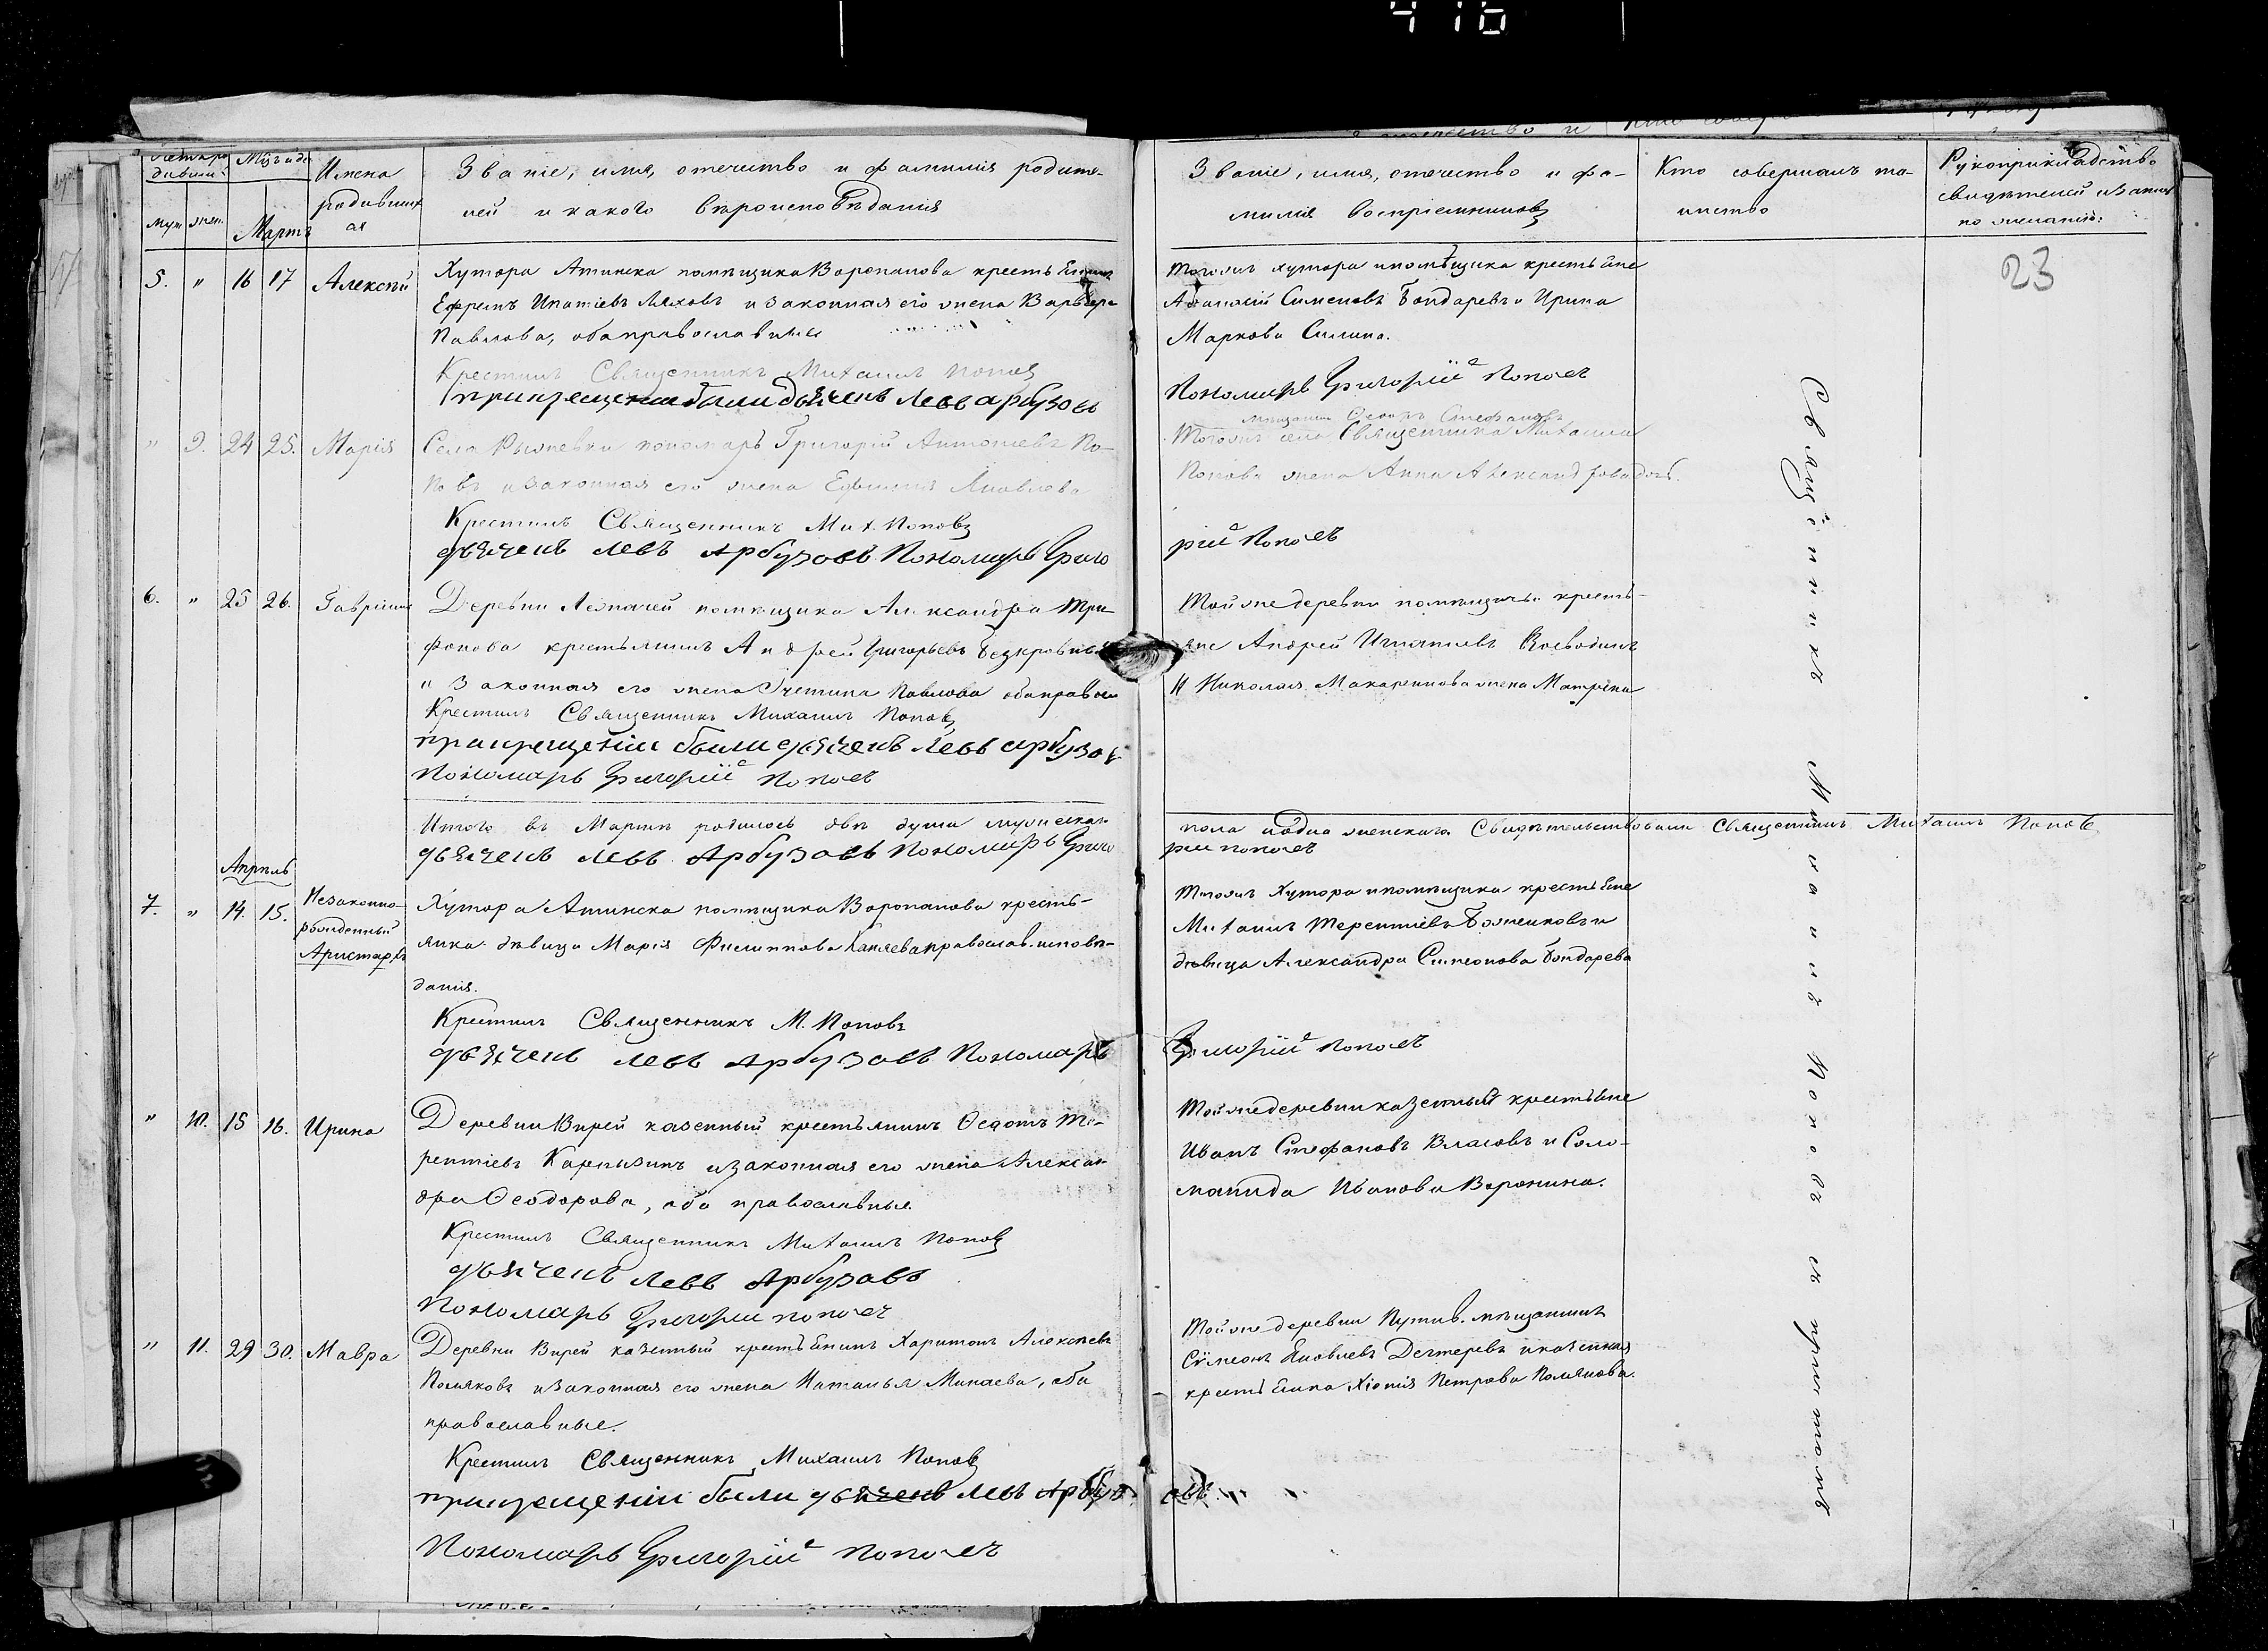 416
Мѣс. и д.
Имена родившихся
Званіе, имя, отчество и фамилія родителей и какого вѣроисповѣданія
муж. жен.
Мартъ
Званіе, имя, отчество и фамилія воспріемниковъ
Кто совершалъ таинство
Рукоприкладство свидѣтелей
по желанію:
23
5. " 16 17 Алексѣй
Хутора Атинска помѣщика Воропанова
Ефремъ Ипатіевъ Ляховъ и законная его жена Варвара
Павлова, оба православные
Крестилъ Священникъ Михаилъ Поповъ
при крещеніи были дьячекъ Левъ Арбузовъ
Тогожъ хутора и помѣщика крестьяне
Симеоновъ Бондаревъ и Ирина
Маркова Силина.
Пономарь Григорій Поповъ
" 9. 24 25. Марія
Села пономарь Григорій Антоніевъ По-
повъ и законная его жена Евфимія Яковлева
Крестилъ Священникъ Мих. Поповъ
дьячекъ Левъ Арбузовъ Пономарь Григо
мѣщанинъ Стефановъ
Тогожъ села Священника Михаила
Попова жена Анна Александрова дочь.
рій Поповъ
6. " 25 26. Гавріилъ
Деревни помѣщика Александра Три-
фонова крестьянинъ Андрей Григорьевъ
и законная его жена Павлова оба правосл
Крестилъ Священникъ Михаилъ Поповъ
при крещеніи были дьячекъ Левъ Арбузов
Пономарь Григорій Поповъ
Тойже деревни помѣщичьи кресть-
яне Андрей Игнатіевъ Воеводинъ
и Николая жена Матрена
Итого въ Мартѣ родилось двѣ души мужескаго
дьячекъ Левъ Арбузовъ Пономарь Григо
пола и одна женскаго. Свидѣтельствовали Священникъ Михаилъ Поповъ
рій Поповъ
Апрѣль
7. " 14. 15. Незаконно-
рожденный
Аристархъ
Хутора Атинска помѣщика Воропанова кресть-
янка дѣвица Марія Филиппова православ. исповѣ-
данія.
Крестилъ Священникъ М. Поповъ
дьячекъ Левъ Арбузовъ Пономарь
Тогожъ Хутора и помѣщика крестьяне
Михаилъ Терентіевъ Боженковъ и
дѣвица Александра Симеонова Бондарева
Григорій Поповъ
" 10. 15 16. Ирина
Деревни Вирей казенный крестьянинъ Ѳедотъ Те-
рентіевъ Карпызинъ и законная его жена Алексан-
дра Ѳеодорова, оба православные.
Крестилъ Священникъ Михаилъ Поповъ
дьячекъ Левъ Арбузовъ
Пономарь Григорій Поповъ
Тойже деревни казенный крестьяне
Иванъ Стефановъ Власовъ и Соло-
манида Иванова Воронина.
" 11. 29 30. Мавра
Деревни Вирей казенный крестьянинъ Харитонъ Алексѣевъ
Поляковъ и законная его жена Наталья Минаева, оба
православные.
Крестилъ Священникъ Михаилъ Поповъ
при крещеніи были дьячекъ Левъ Арбуз
овъ
Пономарь Григорій Поповъ
Тойже деревни Путив. мѣщанинъ
Сѵмеонъ Яковлевъ Дегтеревъ и казенная
крестьянка Хіонія Петрова Полякова.
Священникъ Михаилъ Поповъ съ причтомъ